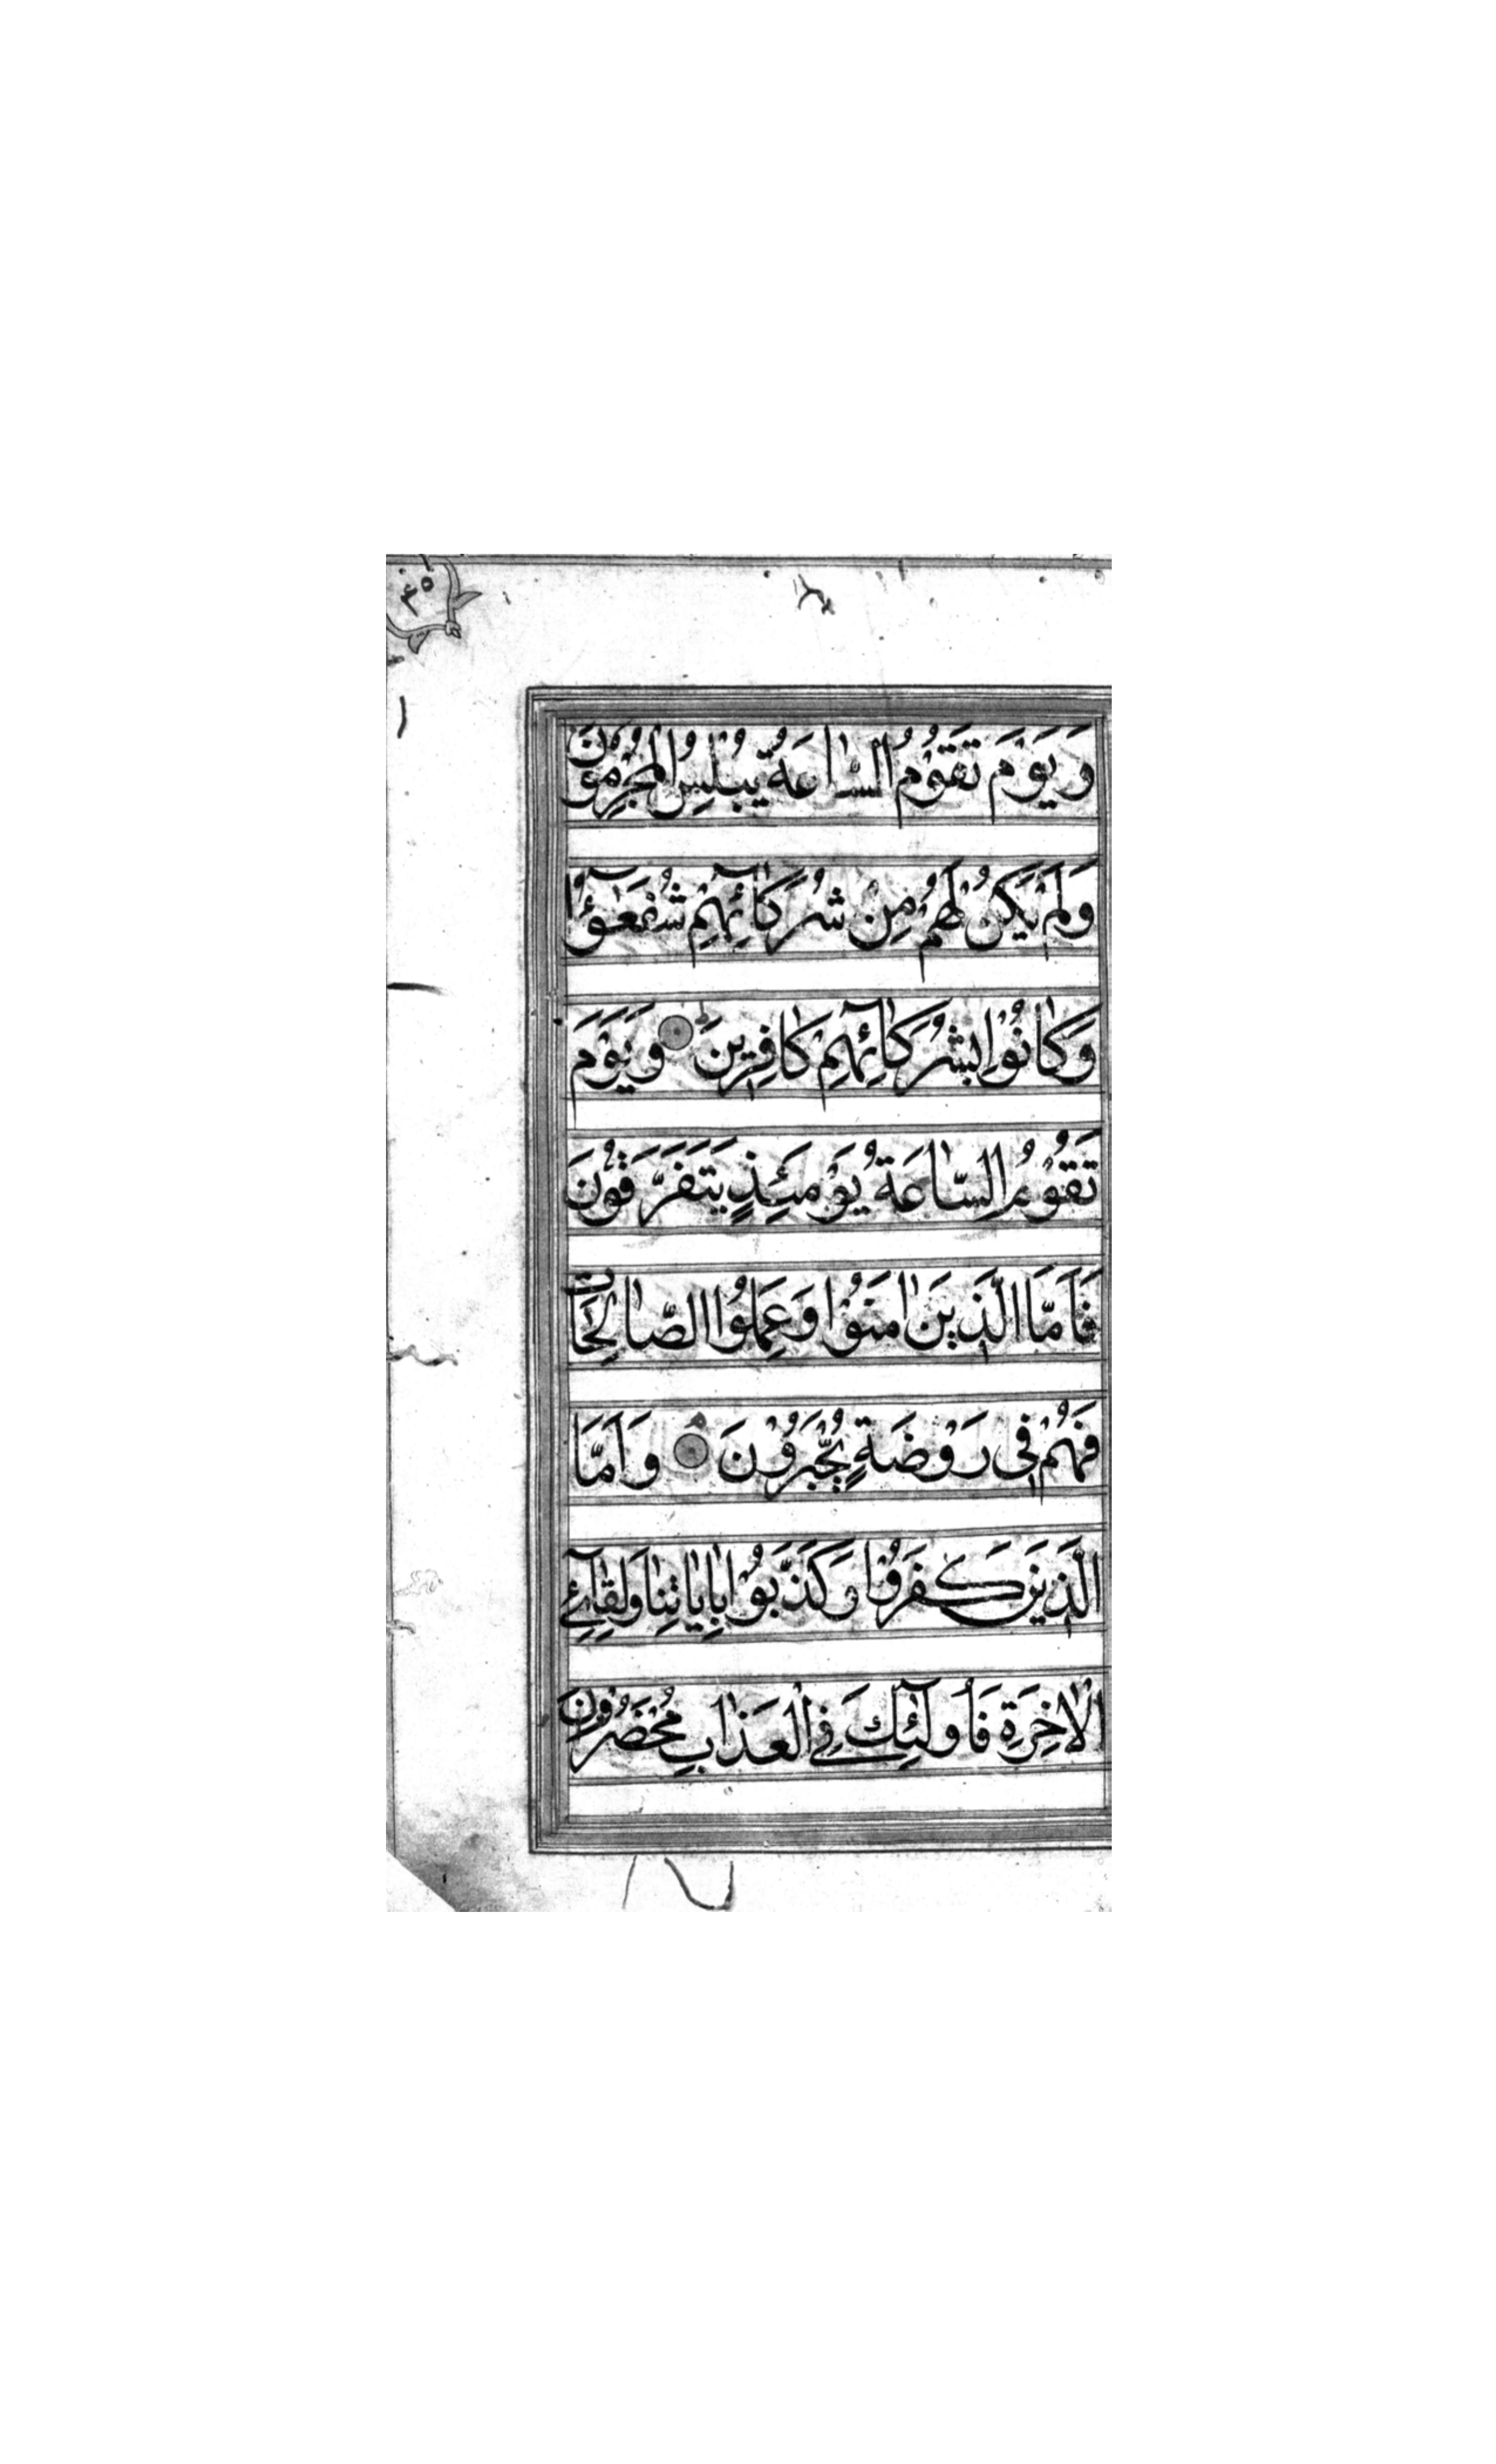 وَيَوْمَ تَقُوْمُ السَّاعَةُ يُبْلِسُ الْمُجْرِمُوْنَ
وَلَمْ يَكُنْ لَهُمْ مِنْ شُرَكَآئِهِمْ شُفَعٰٓؤُا
وَكَانُوْا بِشُرَكَآئِهِمْ كَافِرِينَ وَيَوْمَ
تَقُوْمُ السَّاعَةُ يَوْمَئِذٍ يَتَفَرَّقُوْنَ
فَاَمَّا الَّذِيَنَ اٰمَنَوُْا وَعَمِلُوا الصَّالِحَاتِ
فَهُمْ فِي رَوْضَةٍ يُحْبَرُوْنَ وَاَمَّا
الَّذِيَنَ كَفَرَوُْا وَكَذَّبَوُْا بِاٰيَاتِنَا وَلِقَآئِ
الْاٰخِرَةِ فَاُولٰٓئِكَ فِي الْعَذَابِ مُحْضَرُوْنَ